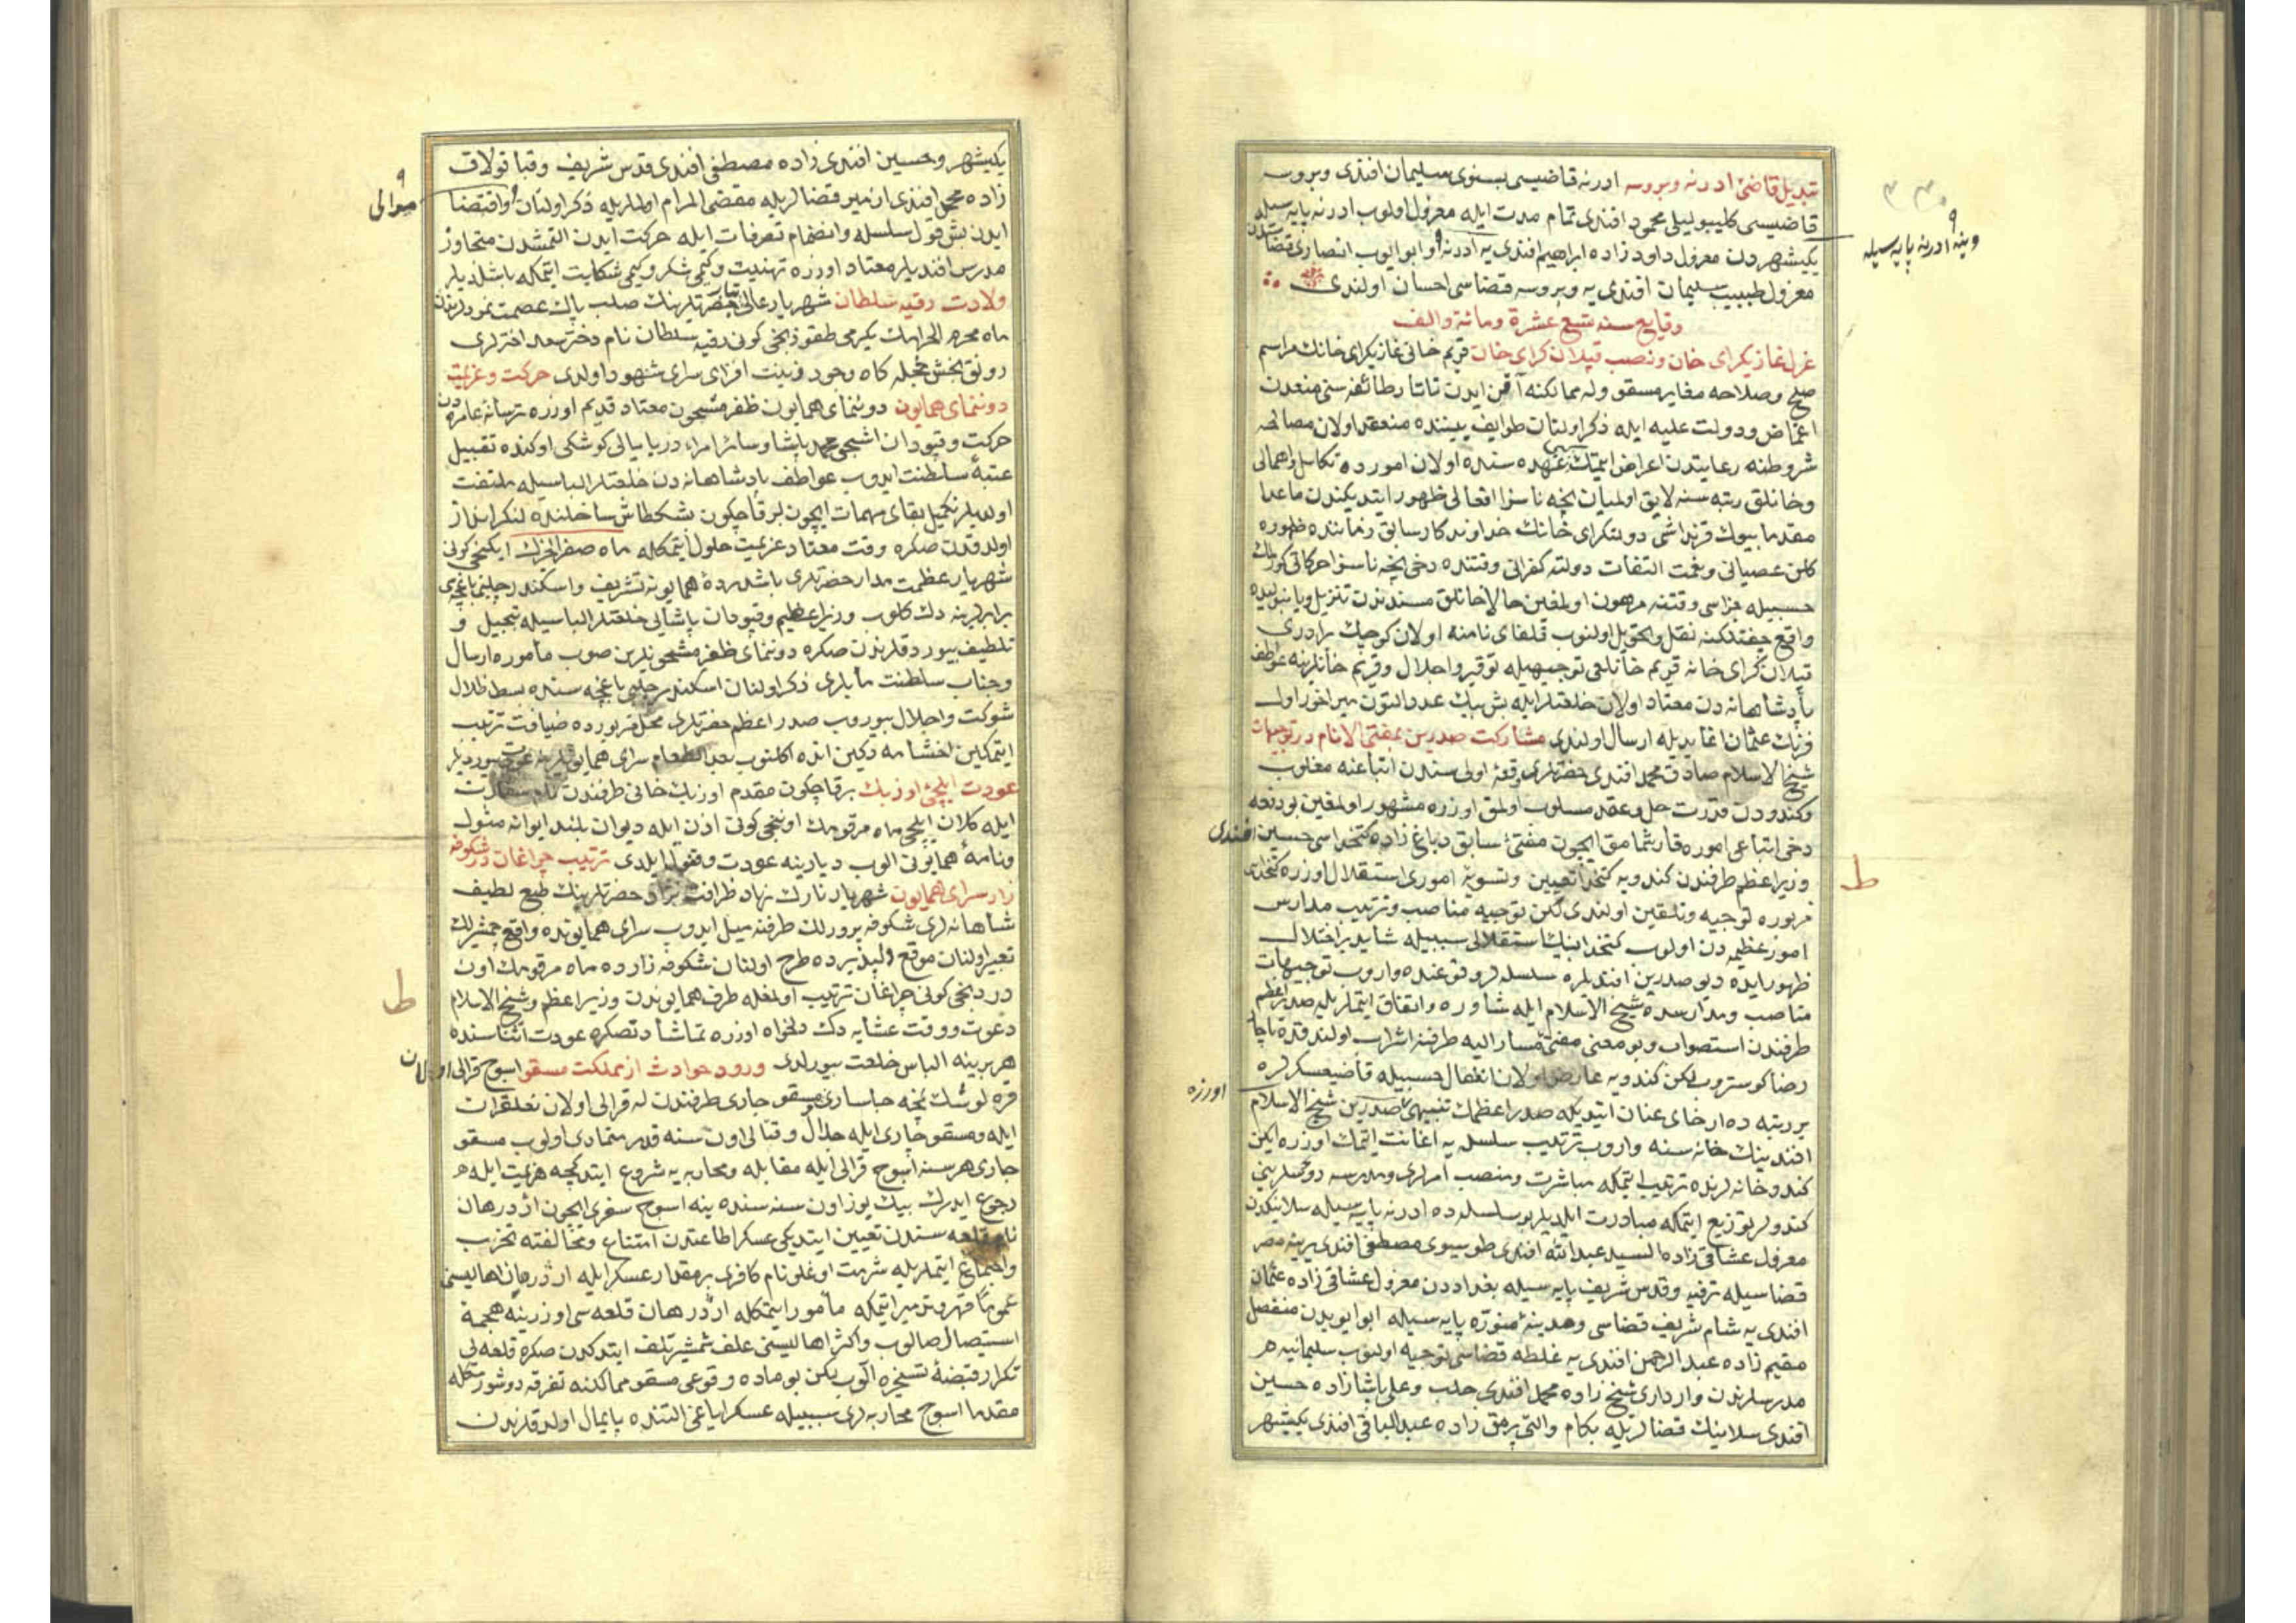 تبدیل قاضئ ادرنه وبروسه ادرنه قاضیسی بسنوی سلیمان افندی وبروسه
قاضیسی کلیبولیلی محمود افندی تمام مدت ایله معزول اولوب ادرنه پایه سیله
یکیشهردن معزول داودزاده ابراهیم افندی یه ادرنه و ابوایوب انصاری قضاسندن
معزول طبیب سلیمان افندی یه وبروسه قضاسی احسان اولندی
وینه ادرنه پایه سیله
وقایع سنه تسع عشرة ومائة والف
عزل غازیکرای خان ونصب قپلان کرای خان قریم خانی غازیکرای خانك مراسم
صلح وصلاحه مغایر مسقو وله ممالکنه آقن ایدن تاتار طائفه سنی منعدن
اغماض ودولت علیه ایله ذکر اولنان طوایف بیننده منعقد اولان مصالحه
شروطنه رعایتدن اعراض ایتمك عهده سنده اولان امورده تکاسل واهمالی
وخانلق رتبه سنه لایق اولمیان نیجه ناسزا افعالی ظهور ایتدیکندن ماعدا
مقدما بیوك قرنداشی دولتکرای خانك خداوندکار سابق زماننده ظهوره
کلن عصیانی ونعمت التفات دولته کفرانی وقتنده دخی نیجه ناسزا حرکاتی
حسبیله جزاسی وقتنه مرهون اولمغین حالا خانلق مسندندن تنزیل ویانبولیده
واقع چفتلکنه نقل وتحویل اولنوب قلغای نامنه اولان کوچك برادری
قپلان کرای خانه قریم خانلغی توجیهیله توقیر واجلال وقریم خانلرینه عواطف
پادشاهانه دن معتاد اولان خلعتلر ایله بش بیك عدد التون میراخور اول
فرنك عثمان اغا یدیله ارسال اولندی مشارکت صدرین بمفتئ الانام در توجیهات
شیخ الاسلام صادق محمد افندی حضرتلری دفعۀ اولی سندن اتباعنه مغلوب
وکندودن قدرت حل وعقد مسلوب اولمق اوزره مشهور اولمغین بو دفعه
دخی اتباعی اموره قارشمامق ایچون مفتئ سابق دباغ زاده کتخداسی حسین افندی
وزیر اعظم طرفندن کندویه کتخدا تعیین وتسویۀ اموری استقلال اوزره کتخدای
مزبوره توجیه وتلقین اولندی لکن توجیه مناصب وترتیب مدارس
امور عظیمه دن اولوب کتخدانك استقلالی سببیله شاید بر اختلال
ظهور ایده دیو صدرین افندیلره سلسله لر وقوعنده واروب توجیهات
مناصب ومدارسده شیخ الاسلام ایله مشاوره واتفاق ایتملریله صدر اعظم
طرفندن استصواب وبو معنی مفتئ مشار الیه طرفنه اشراب اولندقده ناچار
رضا کوستروب لکن کندویه عارض اولان انفعال حسبیله قاضیعسکرلره
اوزره
بر رتبه ده ارخای عنان ایتدیکه صدر اعظمك تنبیهی صدرین شیخ الاسلام
افندینك خانه سنه واروب ترتیب سلسله یه اعانت ایتمك اوزره ایکن
کندو خانه لرنده ترتیب ایتمکه مباشرت ومنصب امرلری ومدرسه رؤسلرینی
کندولر توزیع ایتمکه مبادرت ایلدیلر بو سلسله ده ادرنه پایه سیله سلانیکدن
معزول عشاقی زاده السید عبدالله افندی طوسیوی مصطفی افندی یرینه مصر
قضاسیله ترفیه وقدس شریف پایه سیله بغداددن معزول عشاقی زاده عثمان
افندی یه شام شریف قضاسی ومدینۀ منوره پایه سیله ابوایوبدن منفصل
مقیم زاده عبدالرحمن افندی یه غلطه قضاسی توجیه اولنوب سلیمانیه
مدرسلرندن وارداری شیخ زاده محمد افندی حلب وعلی پاشازاده حسین
افندی سلانیك قضالریله بکام والتی پرمق زاده عبدالباقی افندی یکیشهر
ط
یکیشهر وحسین افندی زاده مصطفی افندی قدس شریف وقبا قولاق
زاده محمد افندی ازمیر قضالریله مقضی المرام اولملریله ذکر اولنان اقتضا
موالی
ایدن بش قول سلسله وانضمام تصرفات ایله حرکت ایدن التمشدن متجاوز
مدرس افندیلر معتاد اوزره تهنیت وکیمی شکر وکیمی شکایت ایتمکه باشلدیلر
ولادت رقیه سلطان شهریار عالی تبار حضرتلرینك صلب پاك عصمت نمودلرندن
ماه محرم الحرامك یکرمی طقوزنجی کونی رقیه سلطان نام دختر سعد اختری
رونق بخش حجله کاه وجود وزینت افزای سرای شهود اولدی حرکت وعزیمت
دوننمای همایون دوننمای همایون ظفر مشحون معتاد قدیم اوزره ترسانۀ عامره دن
حرکت وقپودان اشجی محمد پاشا وسائر امراء دریا یالی کوشکی اوکنده تقبیل
عتبۀ سلطنت ایدوب عواطف پادشاهانه دن خلعتلر الباسیله ملتفت
اولدیلر تکمیل بقای مهمات ایچون بر قاچ کون بشکطاش ساحلنده لنکر انداز
اولدقدن صکره وقت معتاد عزیمت حلول ایتمکله ماه صفر الخیرك ایکنجی کونی
شهریار عظمت مدار حضرتلری باشدردۀ همایونه تشریف واسکندر چلبی باغچه سی
برابرلرینه دك کلوب وزیر اعظم وقپودان پاشایی خلعتلر الباسیله تبجیل و
تلطیف بیوردقلرندن صکره دوننمای ظفر مشحونلرین صوب مأموره ارسال
وجناب سلطنت مآبلری ذکر اولنان اسکندر چلبی باغچه سنده بسط ظلال
شوکت واجلال بیوروب صدر اعظم حضرتلری محل مزبورده ضیافت ترتیب
ایتمکلین اخشامه دکین انده اکلنوب بعد الطعام سرای همایونلرینه عودت بیوردیلر
عودت ایلچئ اوزبك بر قاچ کون مقدم اوزبك خانی طرفندن نامۀ سفارت
ایله کلان ایلچی ماه مرقومك اوننجی کونی اذن ایله دیوان بلند ایوانه مثول
ونامۀ همایونی الوب دیارینه عودت وقفول ایلدی ترتیب چراغان در شکوفه
زار سرای همایون شهریار نازك نهاد ظرافت نژاد حضرتلرینك طبع لطیف
شاهانه لری شکوفه پرورلك طرفنه میل ایدوب سرای همایونده واقع چمشیرلك
تعبیر اولنان موقع دلپذیرده طرح اولنان شکوفه زارده ماه مرقومك اون
دردنجی کونی چراغان ترتیب اولمغله طرف همایوندن وزیر اعظم وشیخ الاسلام
ط
دعوت ووقت عشایه دك دلخواه اوزره تماشادنصکره عودت اثناسنده
هر برینه الباس خلعت بیورلدی ورود حوادث از مملکت مسقو اسوج قرالی اولان
قره لوشك نیچه حباساری مسقو چاری طرفندن له قرالی اولان نعلقران
ایله ومسقو چاری ایله جدال وقتالی اون سنه قدر متمادی اولوب مسقو
چاری هر سنه اسوج قرالی ایله مقابله ومحاربه یه شروع ایتدکجه هزیمت ایله
رجوع ایدرك بیك یوز اون سنه سنده ینه اسوج سفری ایچون اژدرهان
نام قلعه سندن تعیین ایتدیکی عسکر اطاعتدن امتناع ومخالفته تحزب
واجتماع ایتملریله شرمت اوغلی نام کافری بر مقدار عسکر ایله اژدرهان اهالیسنی
عموما قهر وتدمیر ایتمکه مأمور ایتمکله اژدرهان قلعه سی اوزرینه هجمۀ
استیصال صالوب واکثر اهالیسنی علف شمشیر تلف ایتدکدن صکره قلعه یی
تکرار قبضۀ تسخیره الوب لکن بو ماده وقوعی مسقو ممالکنه تفرقه دوشورمکله
مقدما اسوج محاربه لری سببیله عسکر ایاغی التنده پایمال اولدقلرندن